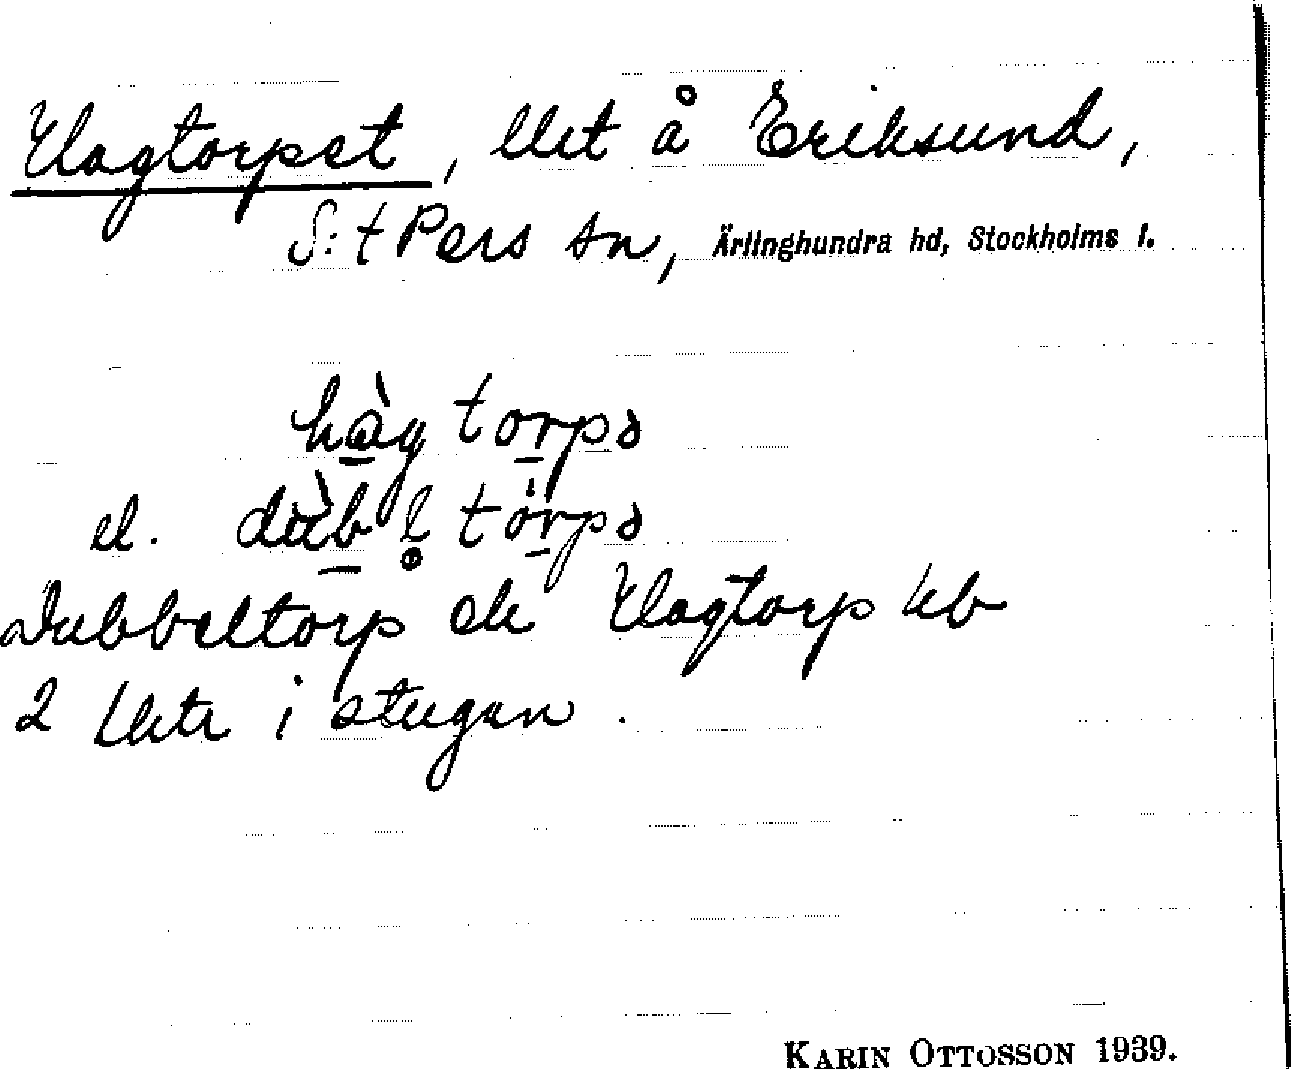 Hagtorpet, llet å Eriksund,
S:t Pers sn, Ärlinghundra hd, Stockholms l.
hàgtorpə
el. dùbl̥tórpə
Dubbeltorp ek Hagtorp kb
2 llktr i stugan.
KARIN OTTOSSON 1939.